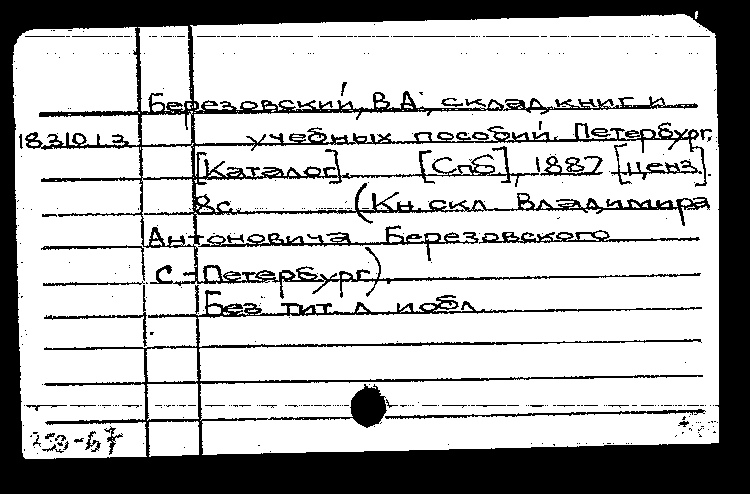 Березовский, В.А., склад книг и
18.310.1.3 учебных пособий. Петербург.
[Каталог]. [Спб], 1887 [ценз].
8с. (Кн. скл. Владимира
Антоновича Березовского
С.-Петербург).
Без тит. л. и обл.